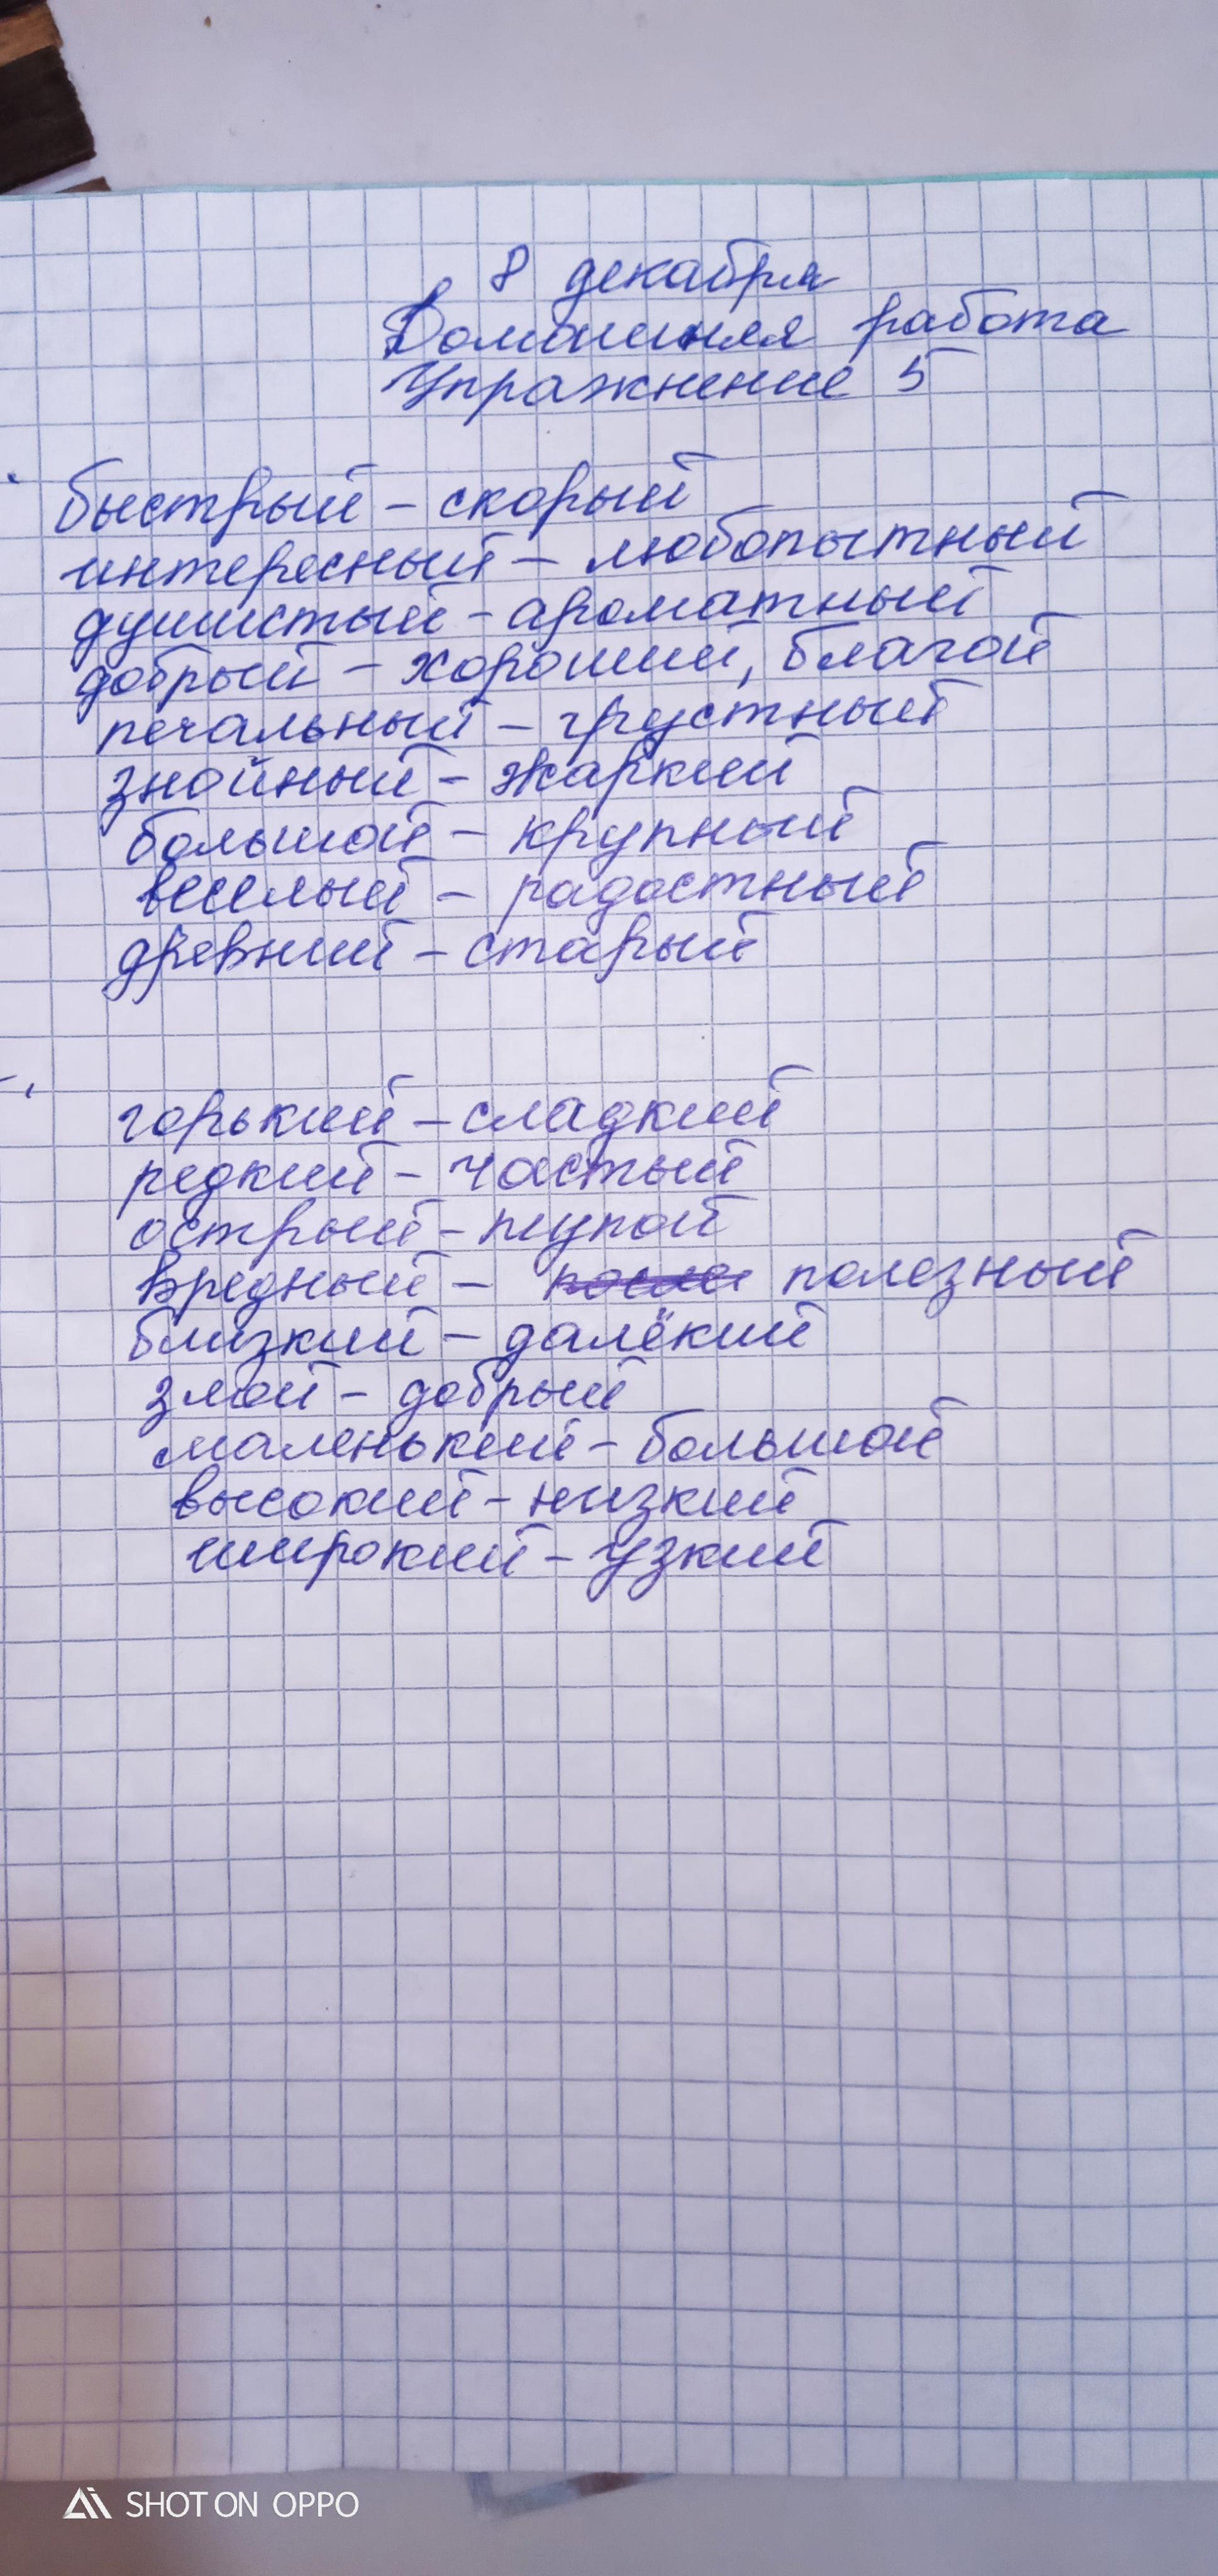 8 декабря
Домашняя работа
Упражнение 5
быстрый - скорый
интересный - любопытный
душистый - ароматный
добрый - хороший, благой
печальный - грустный
знойный - жаркий
большой - крупный
веселый - радостный
древний - старый
горький - сладкий
редкий - частый
острый - тупой
вредный - полезный
близкий - далёкий
злой - добрый
маленький - большой
высокий - низкий
широкий - узкий
SHOT ON OPPO